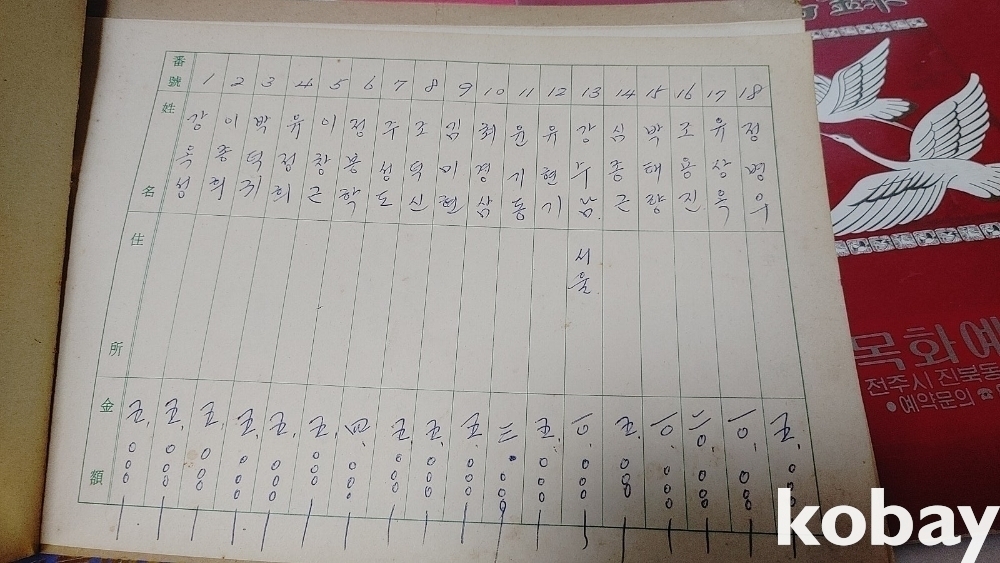 番號 姓名 住所 金額
1 강옥성 五,000
2 이종희 五,000
3 박덕귀 五,000
4 유정희 五,000
5 이창근 五,000
6 정봉학 四,000
7 주성도 五,000
8 조덕신 五,000
9 김미현 五,000
10 최경삼 五,000
11 윤기동 三,000
12 유현기 五,000
13 강수남 서울 一0,000
14 심종근 五,000
15 박태량 一0,000
16 조용진 二0,000
17 유상옥 一0,000
18 정병우 五,000
목화예
전주시 진북동
●예약문의 ☎
kobay